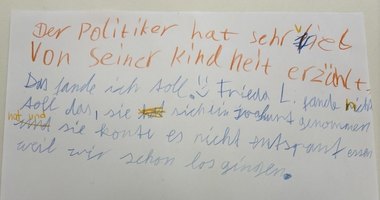 Der Politiker hat sehr viel
Von Seiner Kind heit erzält.
Das fande ich toll. Frieda L. fande nicht
toll das, sie sich ein jochurt genommen
hat und sie konte es nicht entspant essen
weil wir schon los gingen.